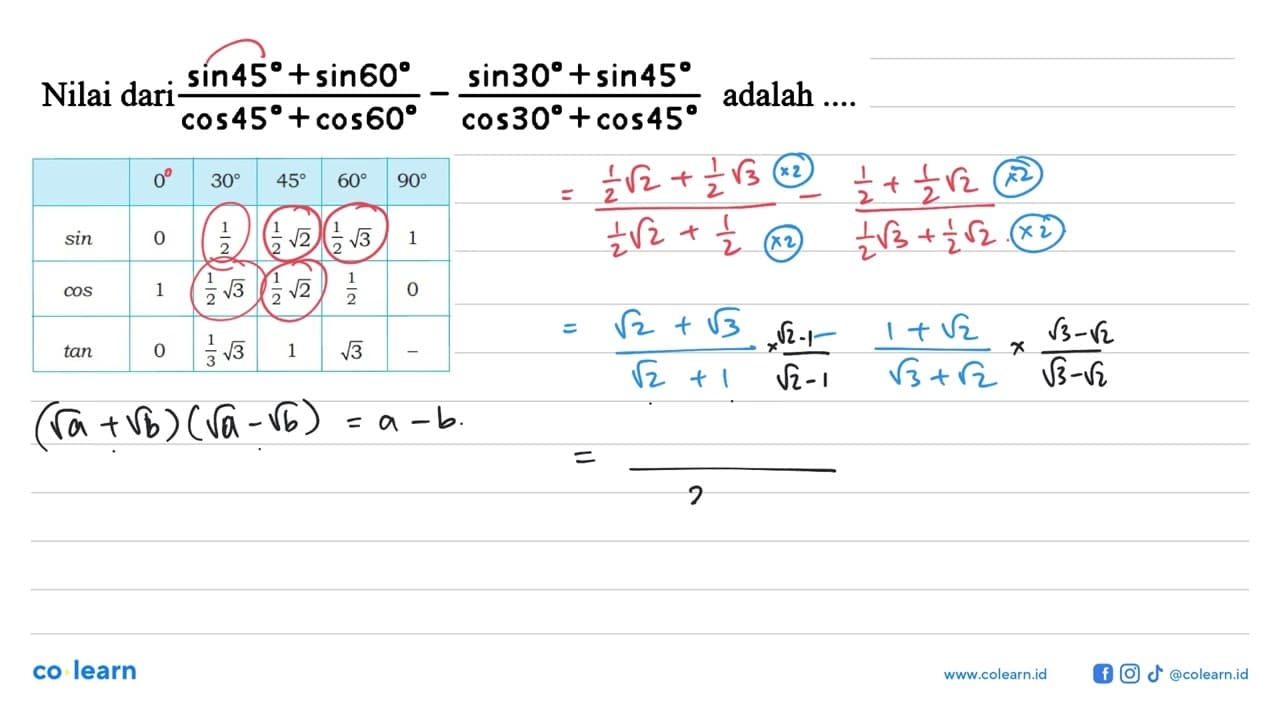 Nilai dari (sin45°+sin60°)/(cos45°+cos60°) − (sin30°+sin45°)/(cos30°+cos45°) adalah ....
0° 30° 45° 60° 90°
sin 0 1/2 1/2 √2 1/2 √3 1
cos 1 1/2 √3 1/2 √2 1/2 0
tan 0 1/3 √3 1 √3 –
= (1/2 √2 + 1/2 √3)/(1/2 √2 + 1/2) (×2)/(×2) − (1/2 + 1/2 √2)/(1/2 √3 + 1/2 √2) (×2)/(×2)
= (√2 + √3)/(√2 + 1) × (√2-1)/(√2-1) − (1 + √2)/(√3 + √2) × (√3-√2)/(√3-√2)
(√a + √b)(√a - √b) = a - b.
= /2
co learn
www.colearn.id
@colearn.id